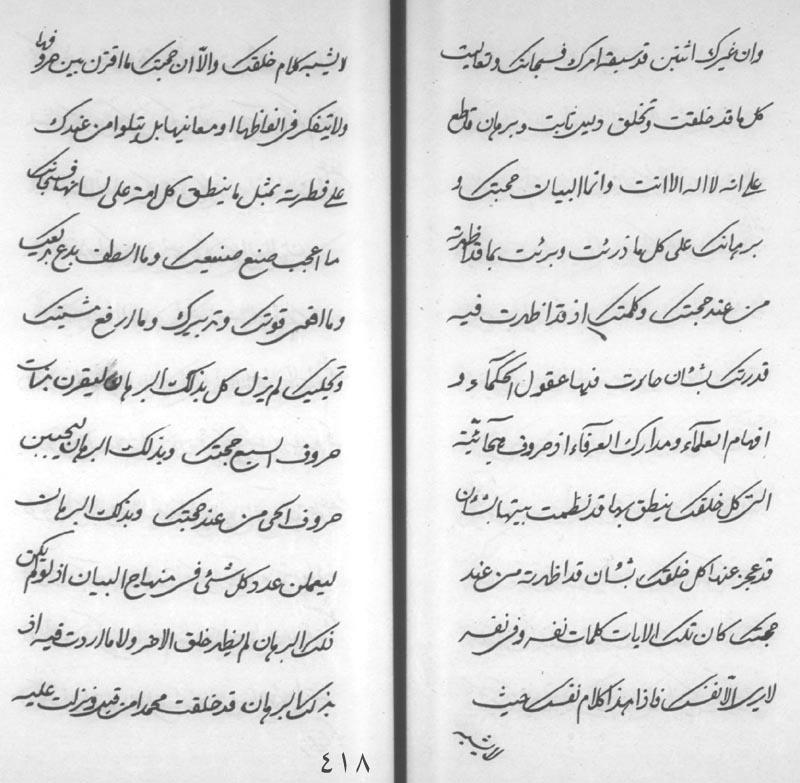 وان غیرک اثنتین قد سبقته امرک فسبحانک وتعالیت
کل ما قد خلقت وتخلق دلیل ثابت وبرهان قاطع
علی انه لا اله الا انت وانما البیان حجتک و
برهانک علی کل ما ذرئت وبرئت بما قد اظهرته
من عند حجتک وکلمتک اذ قد اظهرت فیه
قدرتک بشان حارت فیها عقول الحکماء و
افهام العلماء ومدارک العرفاء اذ حروف هجائیة
التی کل خلقک ینطق بها قد نظمت بینها بشان
قد عجز عنها کل خلقک بشان قد اظهرته من عند
حجتک کان تلک الایات کلمات نفسه وفی نفسه
لا یری الا نفسک فاذا هذا کلام نفسک حیث
لا یشبه
لا یشبه کلام خلقک والا ان حجتک ما اقترن بین حروفها
ولا یتفکر فی الفاظها او معانیها بل یتلوا من عندک
علی فطرته بمثل ما ینطق کل امة علی لسانها فسبحانک
ما اعجب صنع صنیعک وما الطف بدع بدیعک
وما اقهمی قوتک وتدبیرک وما ارفع مشیتک
وتجلیک لم یزل کل بذلک البرهان لیقرن بذات
حروف السبع حجتک وبذلک البرهان لیجیبن
حروف الحی من عند حجتک وبذلک البرهان
لیعملن عدد کل شئ فی منهاج البیان اذ لو لم یکن
ذلک البرهان لم یظهر خلق الاخر ولا ما اردت فیه اذ
بذلک البرهان قد خلقت محمدا من قبل ونزلت علیه
٤١٨